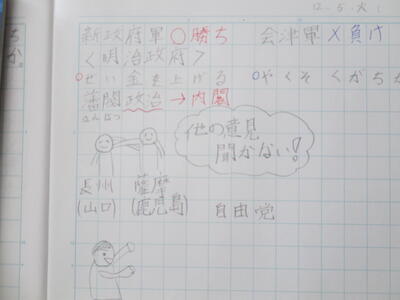 12.5.火
新政府軍 ○勝ち 会津軍 ×負け
<明治政府>
○せい金を上げる ○やくそくがちが
藩閥政治→内閣
はんばつ
他の意見
聞かない!
長州 薩摩
(山口) (鹿児島) 自由党